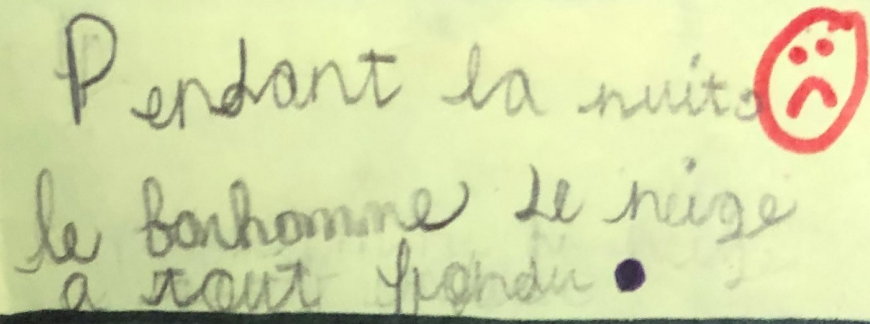 Pendant la nuit
le bonhomme de neige
a tout fondu.